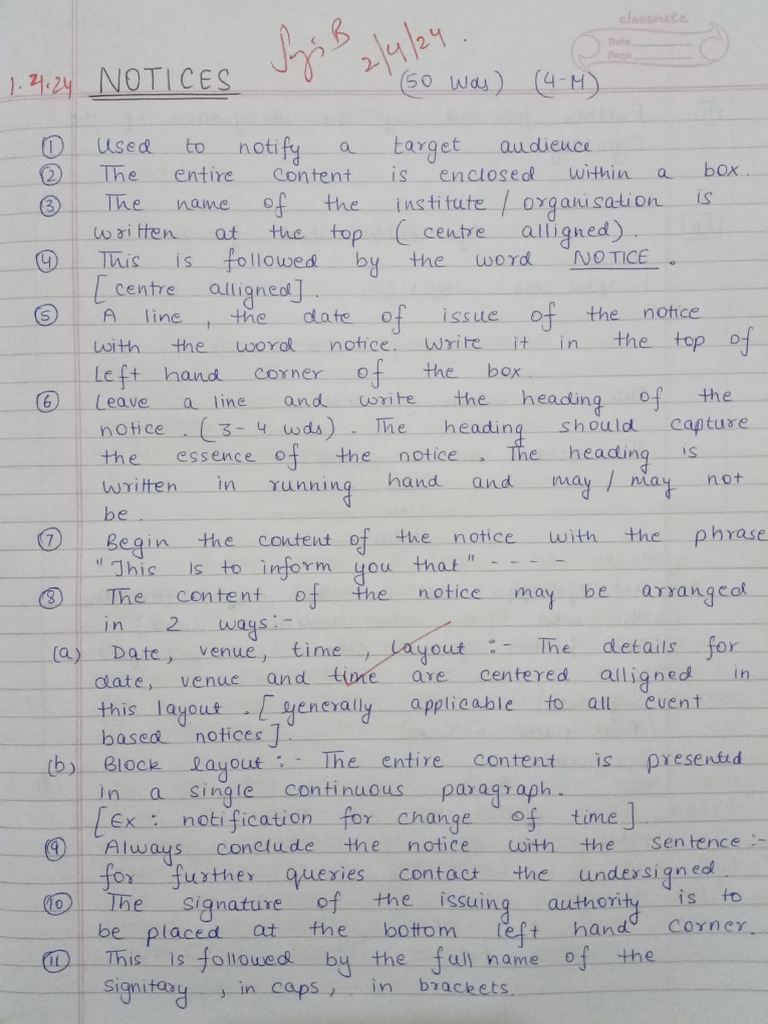 classmate
Date
Page
2/4/24.
1.4.24 NOTICES (50 Wds) (4-M)
① Used to notify a target audience
② The entire content is enclosed within a box.
③ The name of the institute / organisation is
written at the top (centre alligned).
④ This is followed by the word NOTICE.
[centre alligned].
⑤ A line, the date of issue of the notice
with the word notice. Write it in the top of
left hand corner of the box.
⑥ Leave a line and write the heading of the
notice. (3-4 wds). The heading should capture
the essence of the notice. The heading is
written in running hand and may / may not
be.
⑦ Begin the content of the notice with the phrase
"This is to inform you that" - - - -
⑧ The content of the notice may be arranged
in 2 ways:-
(a) Date, venue, time, layout :- The details for
date, venue and time are centered alligned in
this layout. [generally applicable to all event
based notices].
(b) Block layout :- The entire content is presented
in a single continuous paragraph.
[Ex : notification for change of time].
⑨ Always conclude the notice with the sentence :-
for further queries contact the undersigned.
⑩ The signature of the issuing authority is to
be placed at the bottom left hand corner.
⑪ This is followed by the full name of the
signitary, in caps, in brackets.